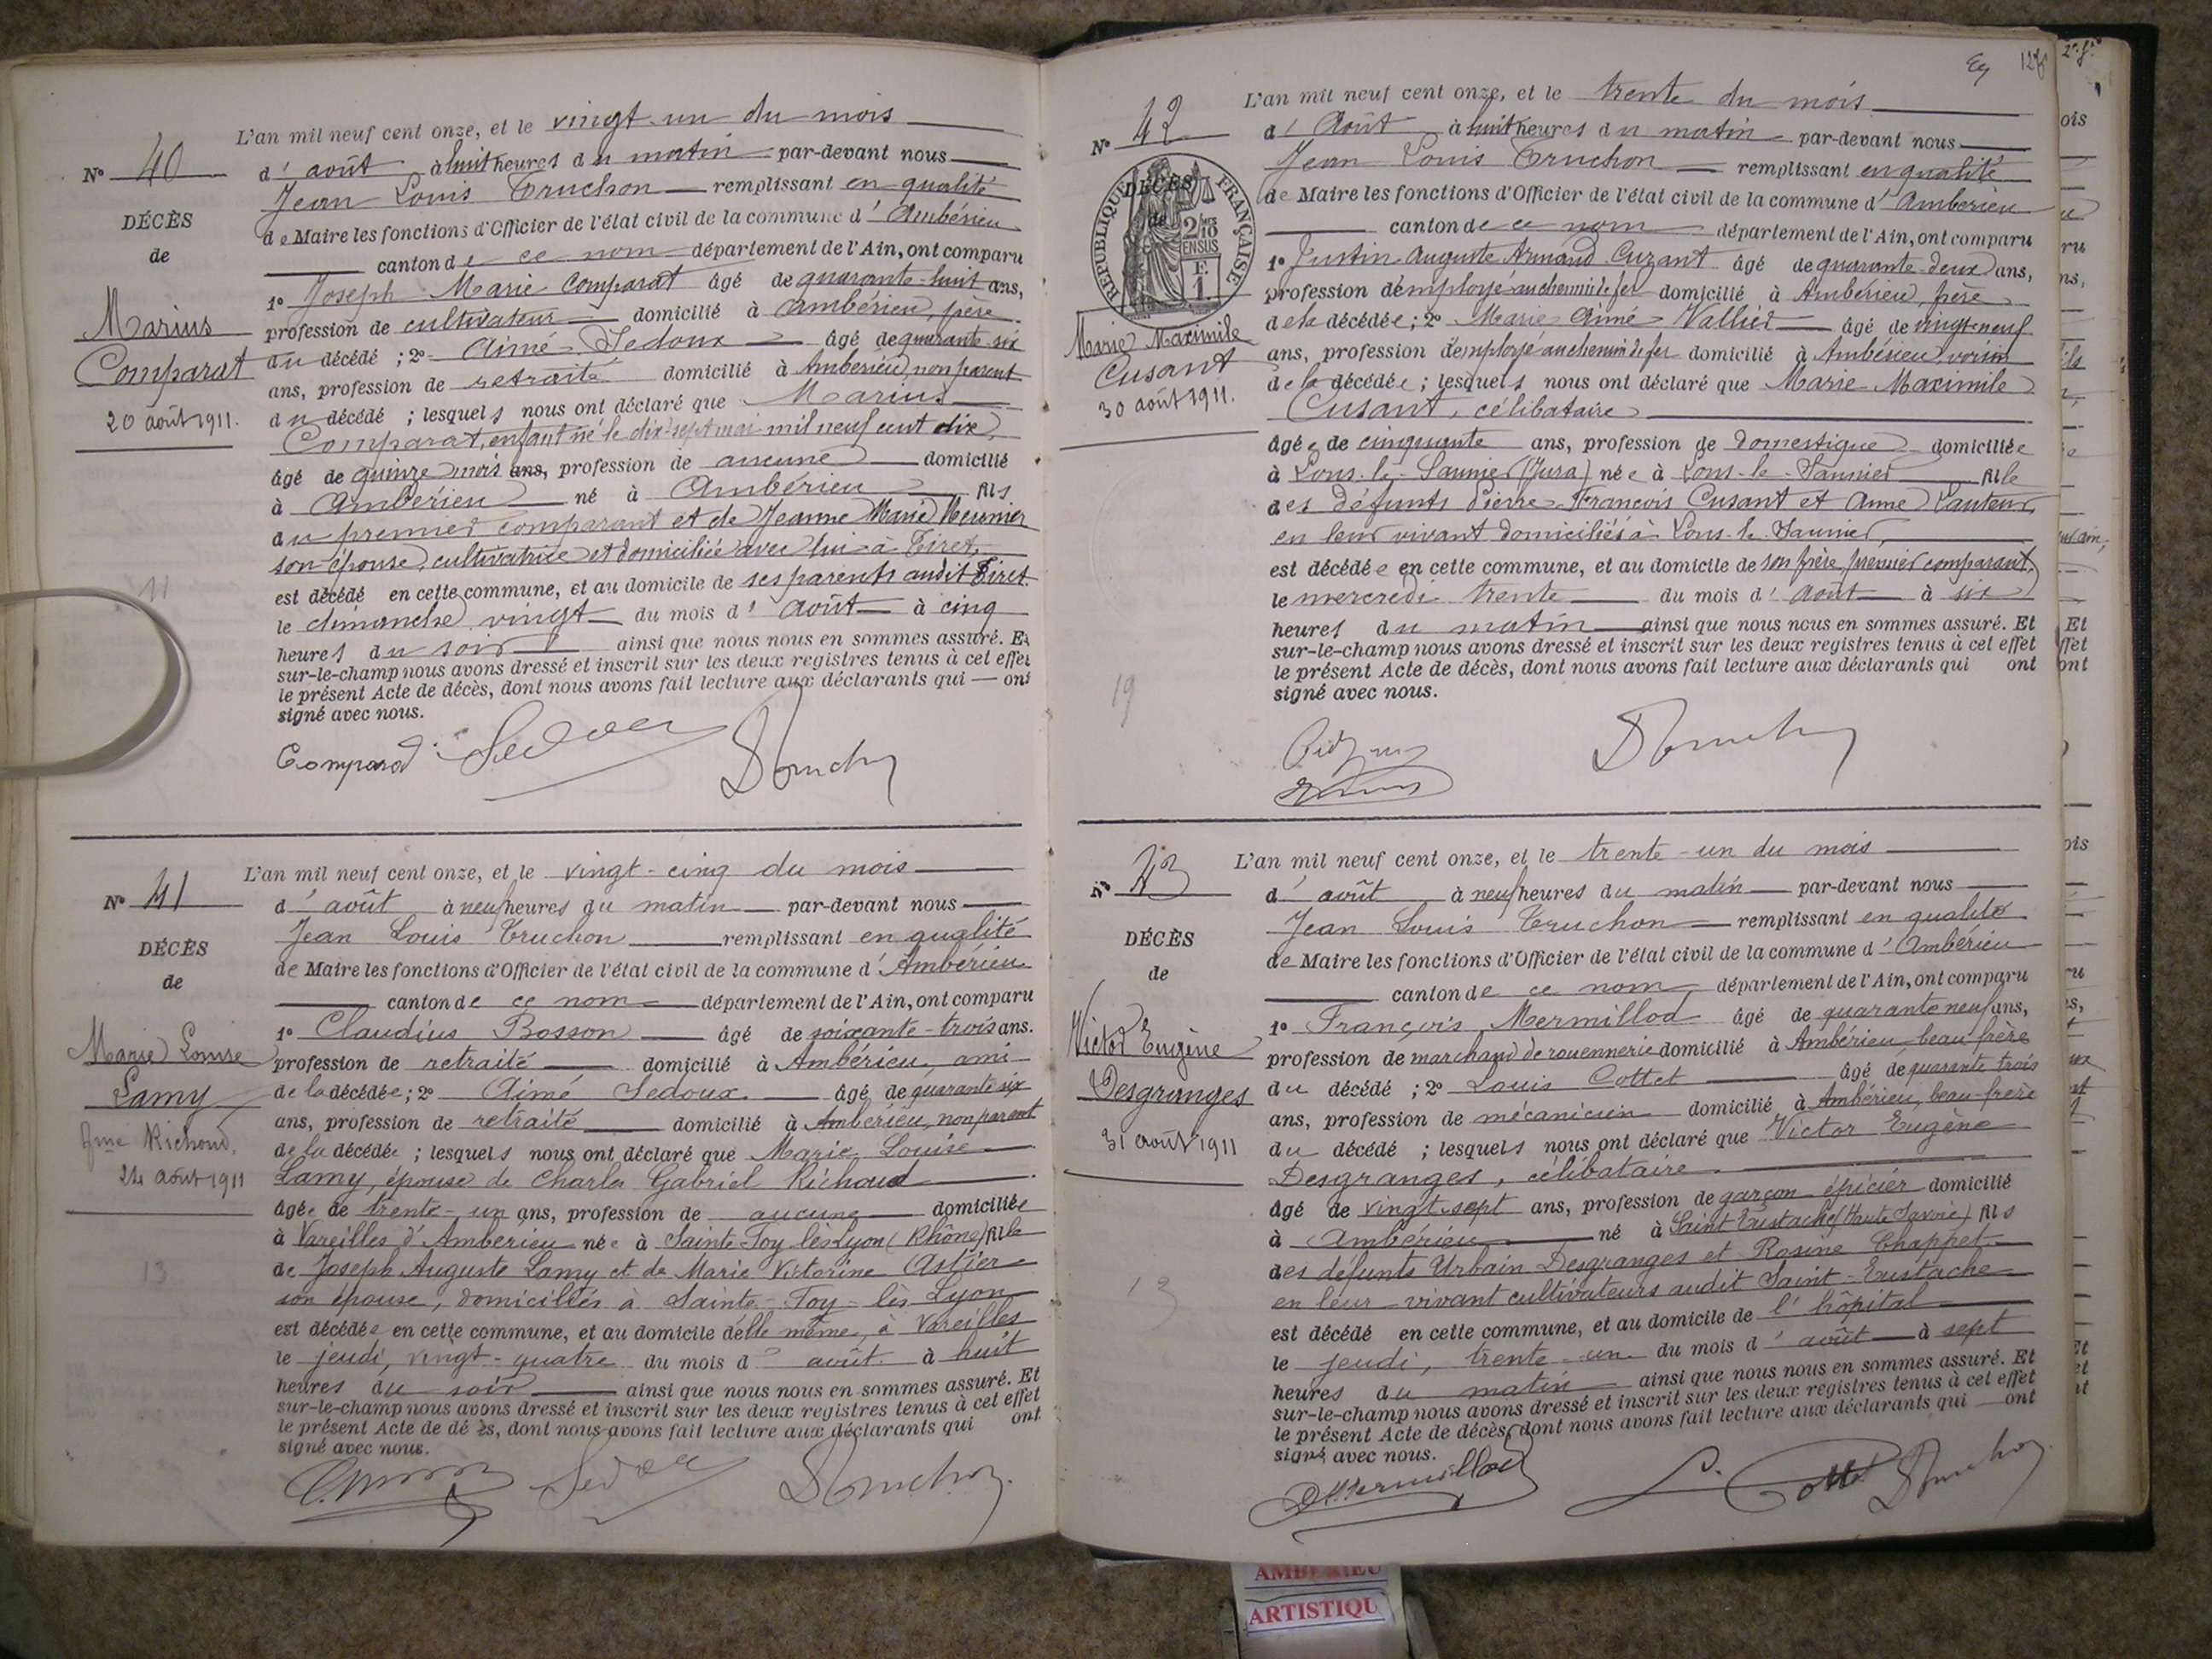 L'an mil neuf cent onze, et le vingt-un du mois
N° 40
d'août à huit heures du matin par-devant nous
Jean Louis Truchon remplissant en qualité
DÉCÈS
de Maire les fonctions d'Officier de l'état civil de la commune d'Ambérieu
de
canton de ce nom département de l'Ain, ont comparu
1° Joseph Marie Comparat âgé de quarante-huit ans,
Marius
profession de cultivateur domicilié à Ambérieu, père
Comparat
du décédé ; 2° Aimé Sedoux âgé de quarante-six
ans, profession de retraité domicilié à Ambérieu, non parent
20 août 1911.
du décédé ; lesquels nous ont déclaré que Marius
Comparat, enfant né le dix-sept mai mil neuf cent dix,
âgé de quinze mois ans, profession de aucune domicilié
à Ambérieu né à Ambérieu fils
du premier comparant et de Jeanne Marie Meunier
son épouse, cultivatrice et domiciliée avec lui à Tiret,
est décédé en cette commune, et au domicile de ses parents audit Tiret
le dimanche vingt du mois d'août à cinq
heures du soir ainsi que nous nous en sommes assuré. Et
sur-le-champ nous avons dressé et inscrit sur les deux registres tenus à cet effet
le présent Acte de décès, dont nous avons fait lecture aux déclarants qui — ont
signé avec nous.
Comparat Sedoux Truchon
L'an mil neuf cent onze, et le vingt-cinq du mois
N° 41
d'août à neuf heures du matin par-devant nous
Jean Louis Truchon remplissant en qualité
DÉCÈS
de Maire les fonctions d'Officier de l'état civil de la commune d'Ambérieu
de
canton de ce nom département de l'Ain, ont comparu
1° Claudius Bosson âgé de soixante-trois ans.
Marie Louise
profession de retraité domicilié à Ambérieu, ami
Lamy
de la décédée ; 2° Aimé Sedoux âgé de quarante six
ans, profession de retraité domicilié à Ambérieu, non parent
fme Richoud.
de la décédée ; lesquels nous ont déclaré que Marie Louise
24 août 1911
Lamy, épouse de Charles Gabriel Richoud
âgée de trente-un ans, profession de aucune domiciliée
à Vareilles d'Ambérieu née à Sainte-Foy lès Lyon (Rhône) fille
de Joseph Auguste Lamy et de Marie Victorine Astier
son épouse, domiciliés à Sainte-Foy-lès Lyon
est décédée en cette commune, et au domicile d'elle même, à Vareilles
le jeudi, vingt-quatre du mois d'août à huit
heures du soir ainsi que nous nous en sommes assuré. Et
sur-le-champ nous avons dressé et inscrit sur les deux registres tenus à cet effet
le présent Acte de décès, dont nous avons fait lecture aux déclarants qui ont
signé avec nous.
Sedoux Truchon
127
L'an mil neuf cent onze, et le trente du mois
N° 42
d'Août à huit heures du matin par-devant nous
Jean Louis Truchon remplissant en qualité
DÉCÈS
de
RÉPUBLIQUE FRANÇAISE
2/10 EN SUS
F. 1.
de Maire les fonctions d'Officier de l'état civil de la commune d'Ambérieu
canton de ce nom département de l'Ain, ont comparu
1° Justin Auguste Armand Cuzant âgé de quarante-deux ans,
profession d'employé au chemin de fer domicilié à Ambérieu, frère
Marie Maximile
de la décédée ; 2° Marie Aimé Vallier âgé de vingt-neuf
ans, profession d'employé au chemin de fer domicilié à Ambérieu, voisin
Cusant
de la décédée ; lesquels nous ont déclaré que Marie Maximile
30 août 1911.
Cusant, célibataire
âgée de cinquante ans, profession de domestique domiciliée
à Lons-le-Saunier (Jura) née à Lons-le-Saunier fille
des défunts Pierre François Cusant et Anne
en leur vivant domiciliés à Lons-le-Saunier,
est décédée en cette commune, et au domicile de son frère, premier comparant,
le mercredi trente du mois d'août à six
heures du matin ainsi que nous nous en sommes assuré. Et
sur-le-champ nous avons dressé et inscrit sur les deux registres tenus à cet effet
le présent Acte de décès, dont nous avons fait lecture aux déclarants qui ont
signé avec nous.
19
Truchon
L'an mil neuf cent onze, et le trente-un du mois
N° 43
d'août à neuf heures du matin par-devant nous
Jean Louis Truchon remplissant en qualité
DÉCÈS
de Maire les fonctions d'Officier de l'état civil de la commune d'Ambérieu
de
canton de ce nom département de l'Ain, ont comparu
1° François Mermillod âgé de quarante neuf ans,
Victor Eugène
profession de marchand de rouennerie domicilié à Ambérieu, beau-frère
Desgranges
du décédé ; 2° Louis Cottet âgé de quarante trois
ans, profession de mécanicien domicilié à Ambérieu, beau-frère
31 août 1911
du décédé ; lesquels nous ont déclaré que Victor Eugène
Desgranges, célibataire
âgé de vingt-sept ans, profession de garçon épicier domicilié
à Ambérieu né à Saint Eustache (Haute Savoie) fils
des défunts Urbain Desgranges et Rosine Chappet
en leur vivant cultivateurs audit Saint-Eustache
est décédé en cette commune, et au domicile de l'hôpital
le jeudi, trente-un du mois d'août à sept
heures du matin ainsi que nous nous en sommes assuré. Et
sur-le-champ nous avons dressé et inscrit sur les deux registres tenus à cet effet
le présent Acte de décès, dont nous avons fait lecture aux déclarants qui ont
signé avec nous.
13
Mermillod L. Cottet Truchon
AMBERIEU
ARTISTIQU